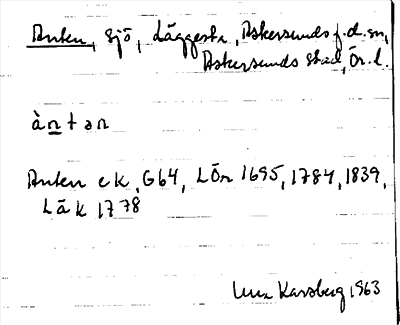 Anten, sjö, Läggesta, Askersunds f.d. sn,
Askersunds stad, Ör. l.
àntən
Anten ek, G64, LÖr 1695, 1784, 1839,
LäK 1778
Karsberg 1963